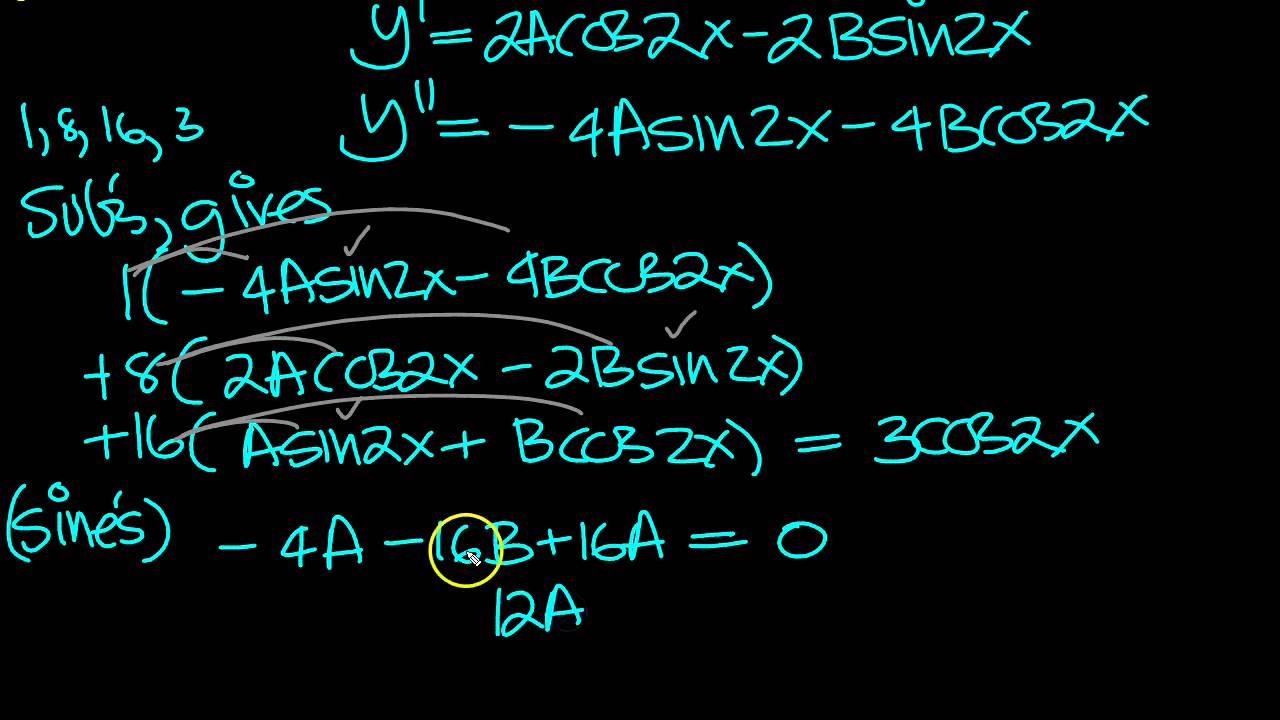 y' = 2Acos2x - 2Bsin2x
1, 8, 16, 3
y'' = - 4Asin2x - 4Bcos2x
Sub's, gives
1( - 4Asin2x - 4Bcos2x)
+8( 2Acos2x - 2Bsin2x)
+16( Asin2x + Bcos2x) = 3cos2x
(sine's) - 4A - 16B + 16A = 0
12A